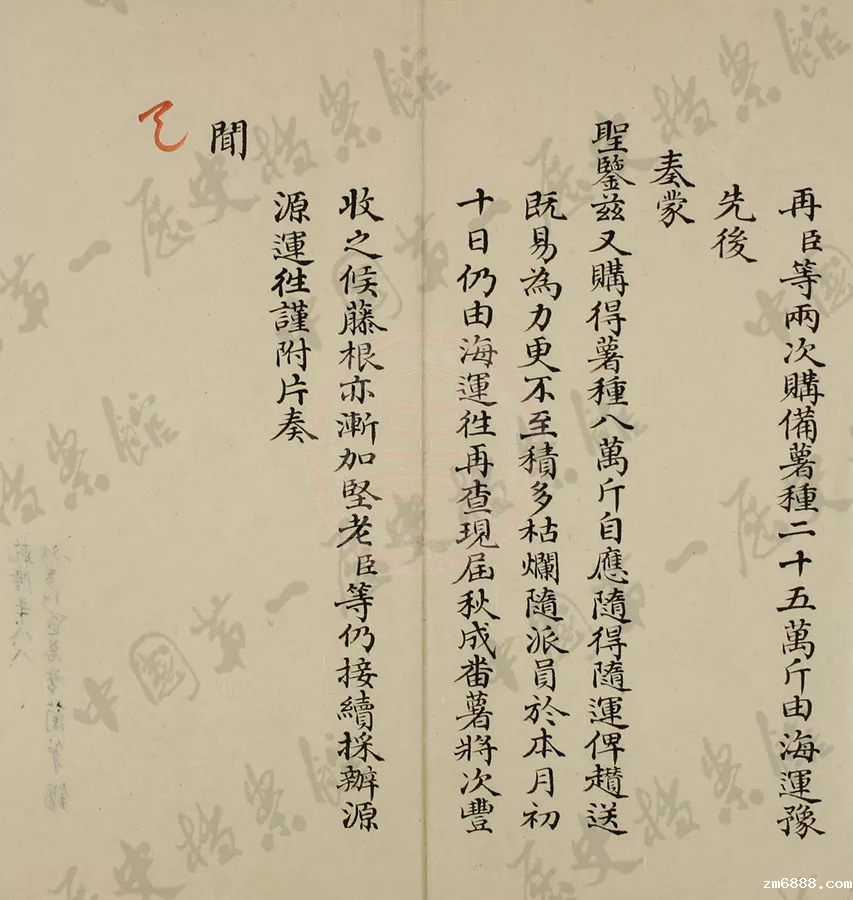 再臣等兩次購備薯種二十五萬斤由海運豫
先後
奏蒙
聖鑒茲又購得薯種八萬斤自應隨得隨運俾趲送
既易為力更不至積多枯爛隨派員於本月初
十日仍由海運徃再查現屆秋成番薯將次豐
收之候藤根亦漸加堅老臣等仍接續採辦源
源運徃謹附片奏
聞
中國第一歷史檔案館
zm6888.com